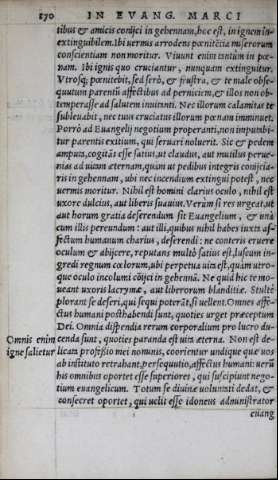 170 IN EVANG. MARCI
tibus & amicis conijci in gehennam, hoc est, in ignem in-
extinguibilem. Ibi uermis arrodens pœnitētia miserorum
conscientiam non moritur. Viuunt enim tantùm in pœ-
nam. Ibi ignis quo cruciantur, nunquam extinguitur.
Vtrosq; pœnitebit, sed serò, & frustra, & te malè obse-
quutum parentū affectibus ad perniciem, & illos non ob-
temperasse ad salutem inuitanti. Nec illorum calamitas te
subleuabit, nec tuus cruciatus illorum pœnam imminuet.
Porrò ad Euangelij negotium properanti, non impunbi-
tur parentis exitium, qui seruari noluerit. Sic & pedem
amputa, cogitās esse satius, ut claudus, aut mutilus perue-
nias ad uitam æternam, quàm ut pedibus integris conijcia-
ris in gehennam, ubi nec incendium extingui potest, nec
uermis moritur. Nihil est homini clarius oculo, nihil est
uxore dulcius, aut liberis suauius. Verùm si res urgeat, ut
aut horum gratia deserendum sit Euangelium, & unà
cum illis pereundum: aut illi, quibus nihil habes iuxta af-
fectum humanum charius, deserendi: ne conteris eruere
oculum & abijcere, reputans multò satius est, luscum in-
gredi regnum cœlorum, ubi perpetua uita est, quàm utro-
que oculo incolumi cōijci in gehennā. Ne quid hic te mo-
ueant uxoris lacrymæ, aut liberorum blanditiæ. Stultè
plorant se deseri, qui sequi poterāt, si uellent. Omnes affe-
ctus humani posthabendi sunt, quoties urget præceptum
Dei. Omnia dispendia rerum corporalium pro lucro du-
Omnis enim cenda sunt, quoties paranda est uita æterna. Non est de-
igne salietur licata professio mei nominis, coorientur undique quæ uos
ab instituto retrahant, persequutio, affectus humani: uerū
his omnibus oportet esse superiores, qui suscipiunt nego-
tium euangelicum. Totum se diuinæ uoluntati dedat, &
consecret oportet, qui uelit esse idoneus administrator
euang